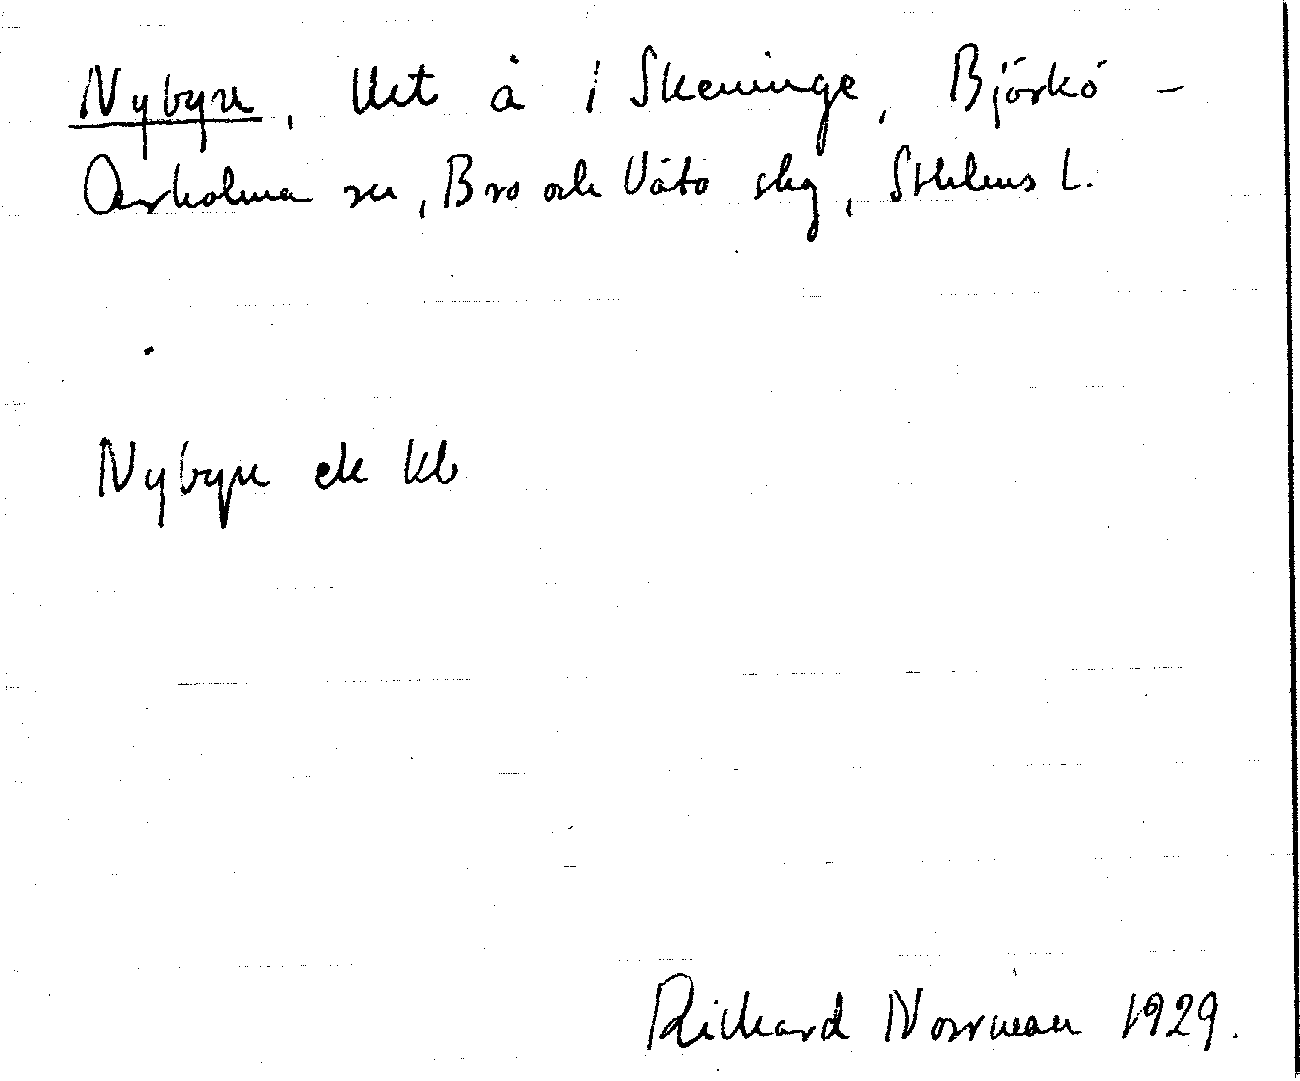 Nybyn, Ust å i Skeninge, Björkö -
Arholma sn, Bro och Vätö skg, Sthlms L.
Nybyn ek kb
Rickard Norrman 1929.